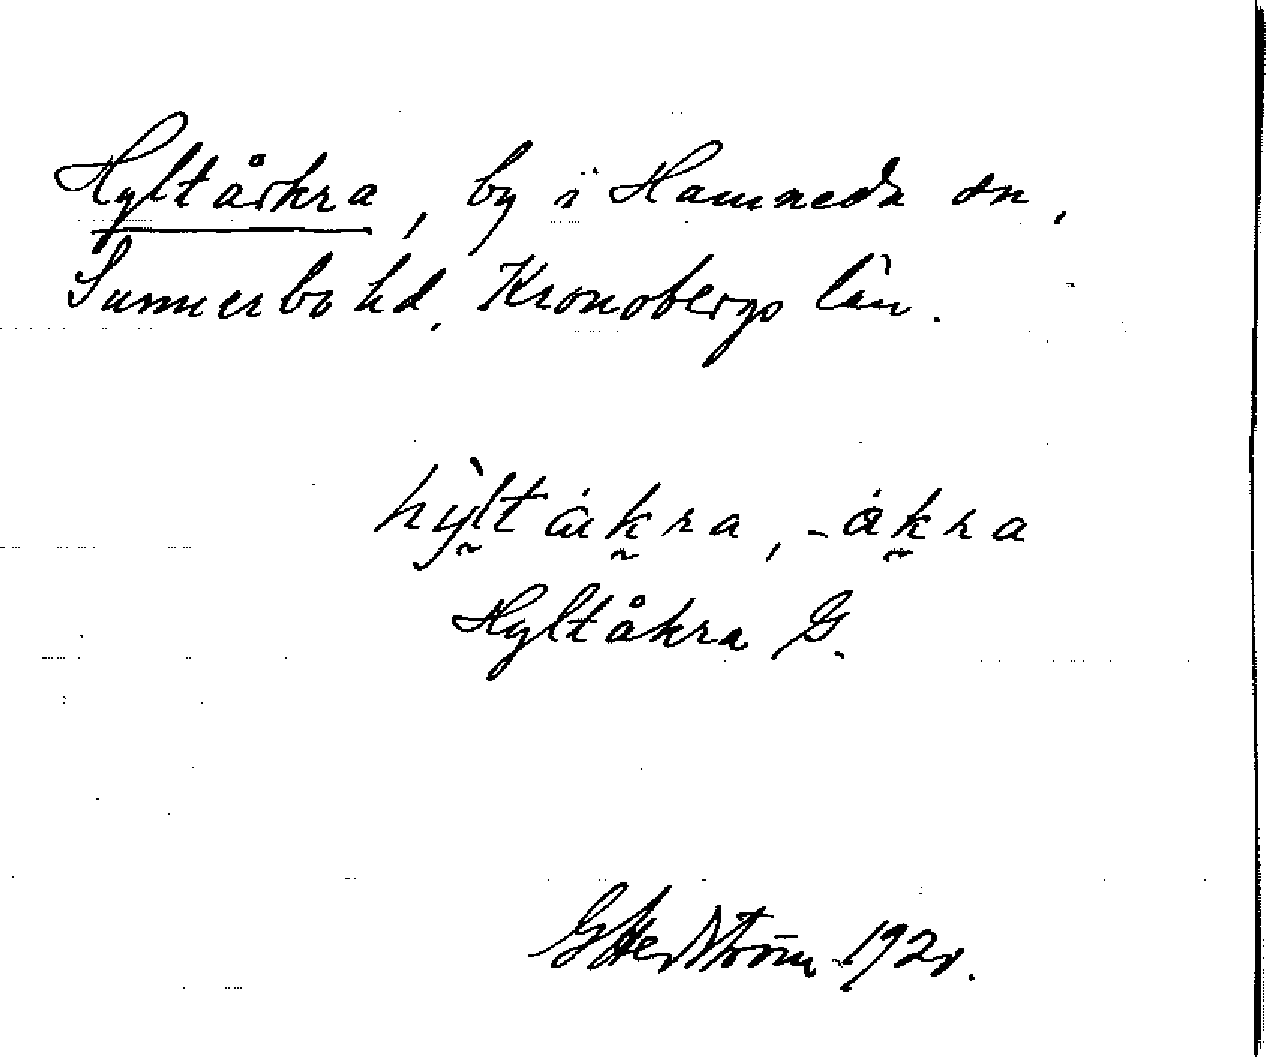 Hyltåkra, by i Hamneda sn,
Sunnerbo hd, Kronobergs län.
hỳltåkra, -åkra
Hyltåkra G.
G Hedström 192